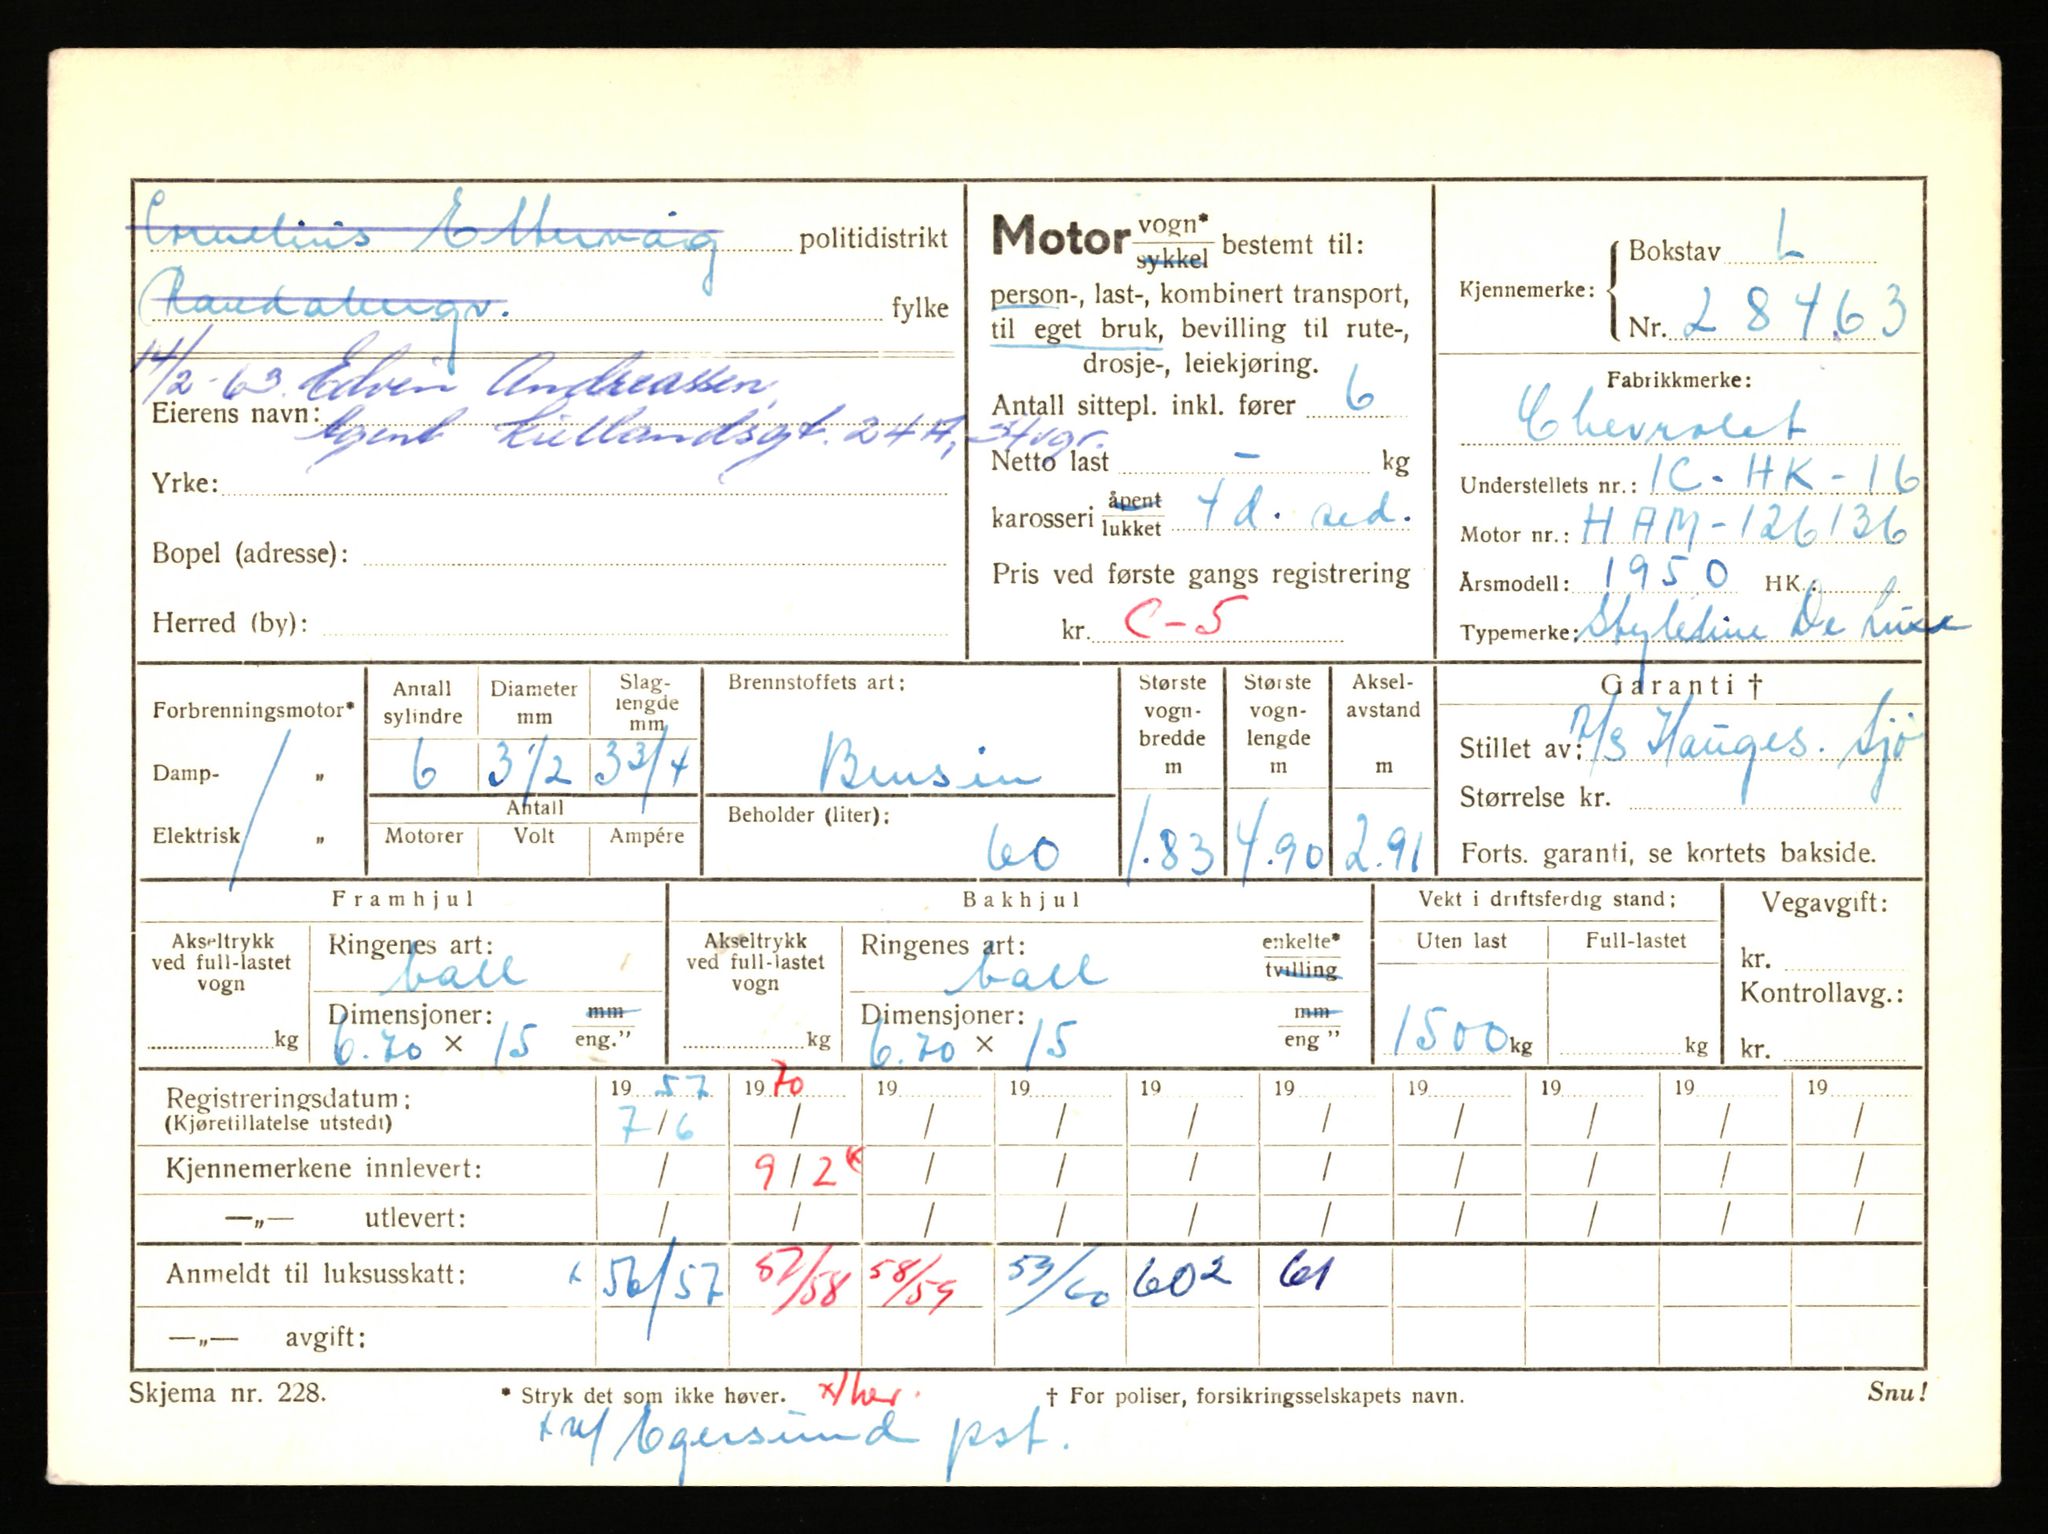 Cornelius Ettervåg politidistrikt
Randabergv. fylke
14/2-63. Edvin Andreassen,
Eierens navn: Agent Kiellandsgt. 24A, Stvgr.
Yrke:
Bopel (adresse):
Herred (by):
Motor vogn* sykkel bestemt til:
person-, last-, kombinert transport,
til eget bruk, bevilling til rute-,
drosje-, leiekjøring.
Antall sittepl. inkl. fører 6
Netto last – kg
karosseri åpent lukket 4 d. sed.
Pris ved første gangs registrering
kr. C-5
Kjennemerke: Bokstav L
Nr. 28463
Fabrikkmerke:
Chevrolet
Understellets nr.: 1C-HK-16
Motor nr.: HAM-126136
Årsmodell: 1950 HK.:
Typemerke: Styleline De Luxe
Forbrenningsmotor*
Damp- „
Elektrisk „
Antall sylindre Diameter mm Slag-lengde mm
6 3 1/2 3 3/4
Antall
Motorer Volt Ampére
Brennstoffets art:
Bensin
Beholder (liter):
60
Største vogn-bredde m Største vogn-lengde m Aksel-avstand m
1.83 4.90 2.91
Garanti †
Stillet av: A/S Hauges. Sjø
Størrelse kr.
Forts. garanti, se kortets bakside.
Framhjul Bakhjul Vekt i driftsferdig stand: Vegavgift:
Akseltrykk ved full-lastet vogn
kg
Ringenes art:
ball
Dimensjoner: mm
6.70 × 15 eng."
Akseltrykk ved full-lastet vogn
kg
Ringenes art: enkelte*
ball tvilling
Dimensjoner: mm
6.70 × 15 eng"
Uten last Full-lastet
1500 kg kg
kr.
Kontrollavg.:
kr.
Registreringsdatum: 19 57 19 70 19 19 19 19 19 19 19 19
(Kjøretillatelse utstedt) 7/6 / / / / / / / / /
Kjennemerkene innlevert: / 9/2 x / / / / / / / /
—„— utlevert: / / / / / / / / / /
Anmeldt til luksusskatt: x 56/57 57/58 58/59 59/60 60 2 61
—„— avgift:
Skjema nr. 228. * Stryk det som ikke høver. x/her. † For poliser, forsikringsselskapets navn. Snu!
x v/ Egersund pst.